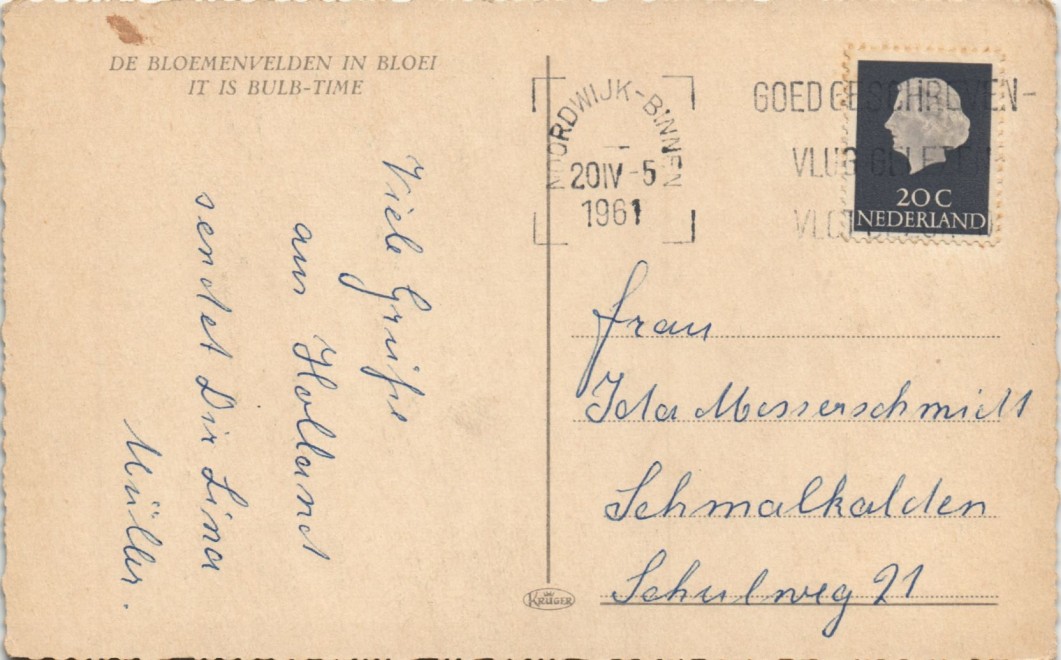 DE BLOEMENVELDEN IN BLOEI
IT IS BULB-TIME
Viele Grüße
aus Holland
sendet Dir Lina
Müller.
NOORDWIJK-BINNEN
20 IV -5
1961
GOED GESCHREVEN-
VLUG GELEZEN
VLUG
20 C
NEDERLAND
Frau
Ida Messerschmidt
Schmalkalden
Schulweg 21
KRÜGER